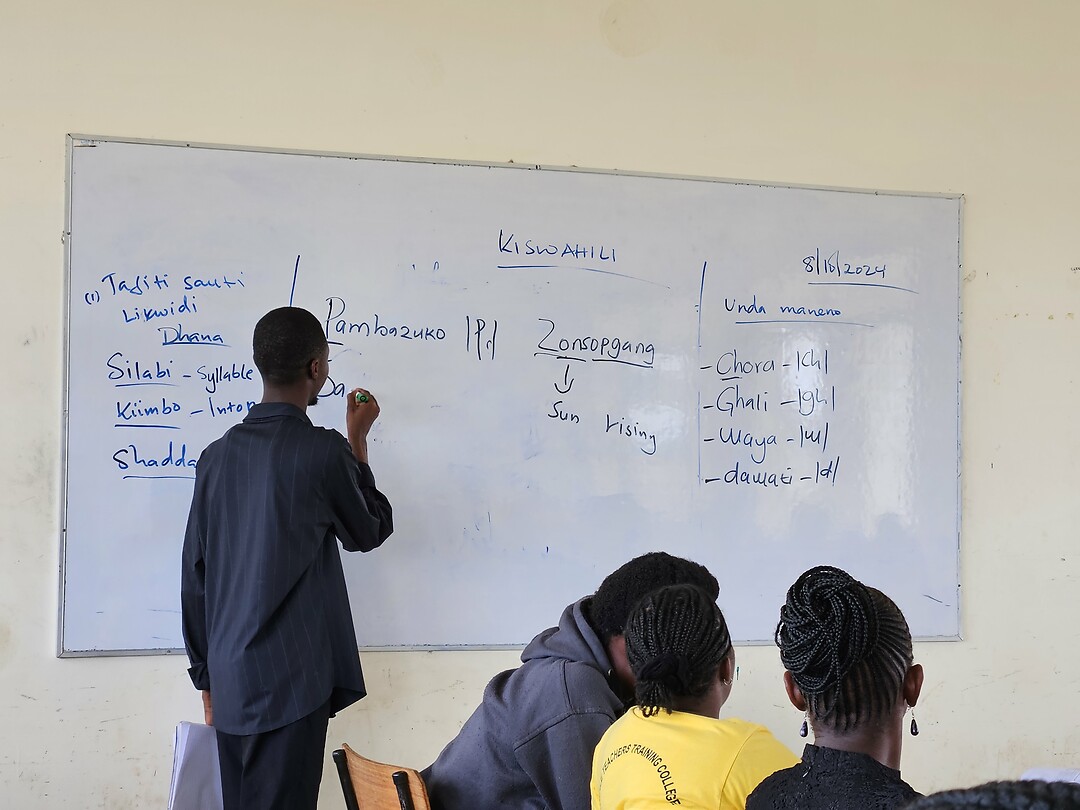 KISWAHILI
8/10/2024
(1) Tafiti sauti
Likwidi
Dhana
Silabi - Syllable
Kiimbo - Inton
Shadda
Pambazuko |P|
Da
Zonsopgang
Sun rising
Unda maneno
- Chora - |Ch|
- Ghali - |gh|
- Waya - |w|
- dawati - |d|
TEACHERS TRAINING COLLEGE